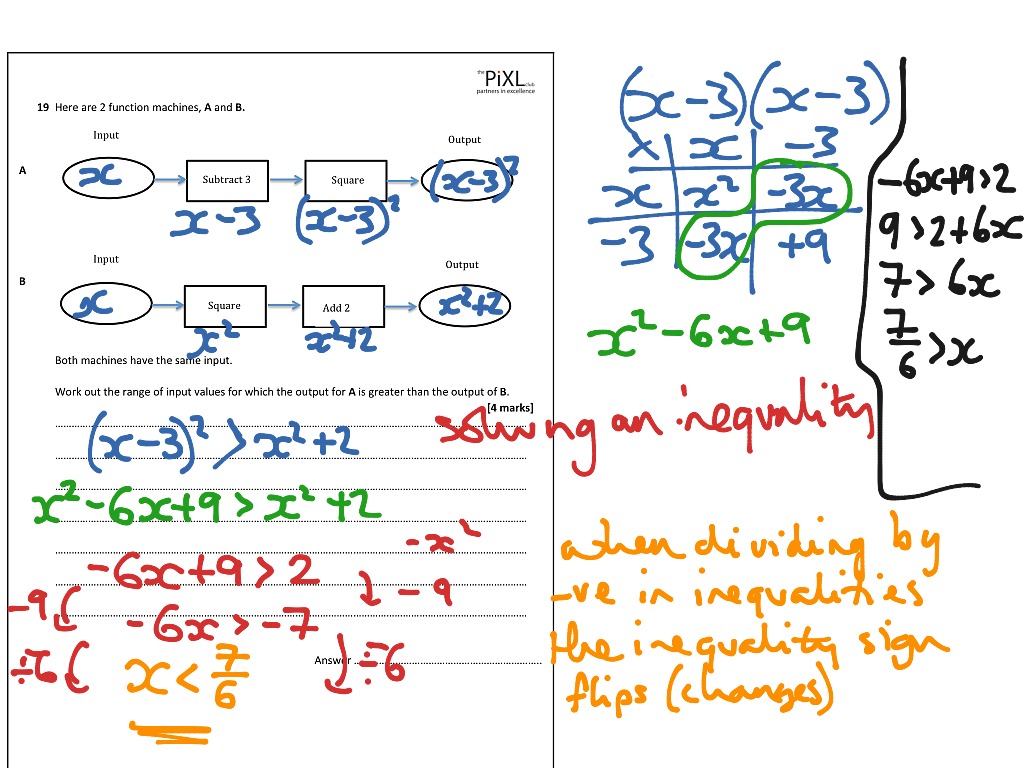 the PiXL club
partners in excellence
19 Here are 2 function machines, A and B.
Input
Output
A
x
Subtract 3
Square
(x-3)²
x-3
(x-3)²
Input
Output
B
x
Square
Add 2
x²+2
x²
x²+2
Both machines have the same input.
Work out the range of input values for which the output for A is greater than the output of B.
[4 marks]
(x-3)² > x²+2
x²-6x+9 > x²+2
-x²
-6x+9 > 2
-9
-9
-6x > -7
÷-6
÷-6
x < 7/6
Answer
(x-3)(x-3)
× x -3
x x² -3x
-3 -3x +9
x²-6x+9
solving an inequality
-6x+9>2
9>2+6x
7>6x
7/6>x
when dividing by
-ve in inequalities
the inequality sign
flips (changes)